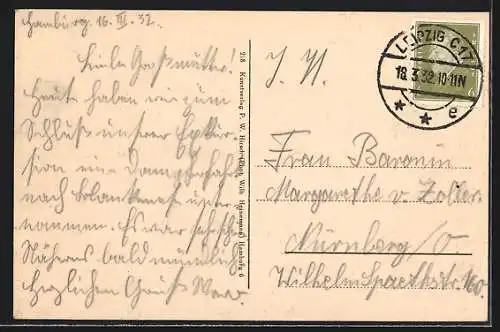 Hamburg, 16. III. 32.
Liebe Großmutter!
Heute haben wir zum
Schluß unserer Exkur-
sion eine Dampferfahrt
nach Blankenese unter-
nommen. Es war sehr schön
Näheres bald mündlich
Herzlichen Gruß
218 Kunstverlag P. W. Hirsch (Inh. Wilh. Heinemann) Hamburg 6
LEIPZIG C1
18.3.32.10-11N
* * e
I. H.
Frau Baronin
Margarethe v. Zoller
Nürnberg/O
Wilhelm Spaethstr. 160.